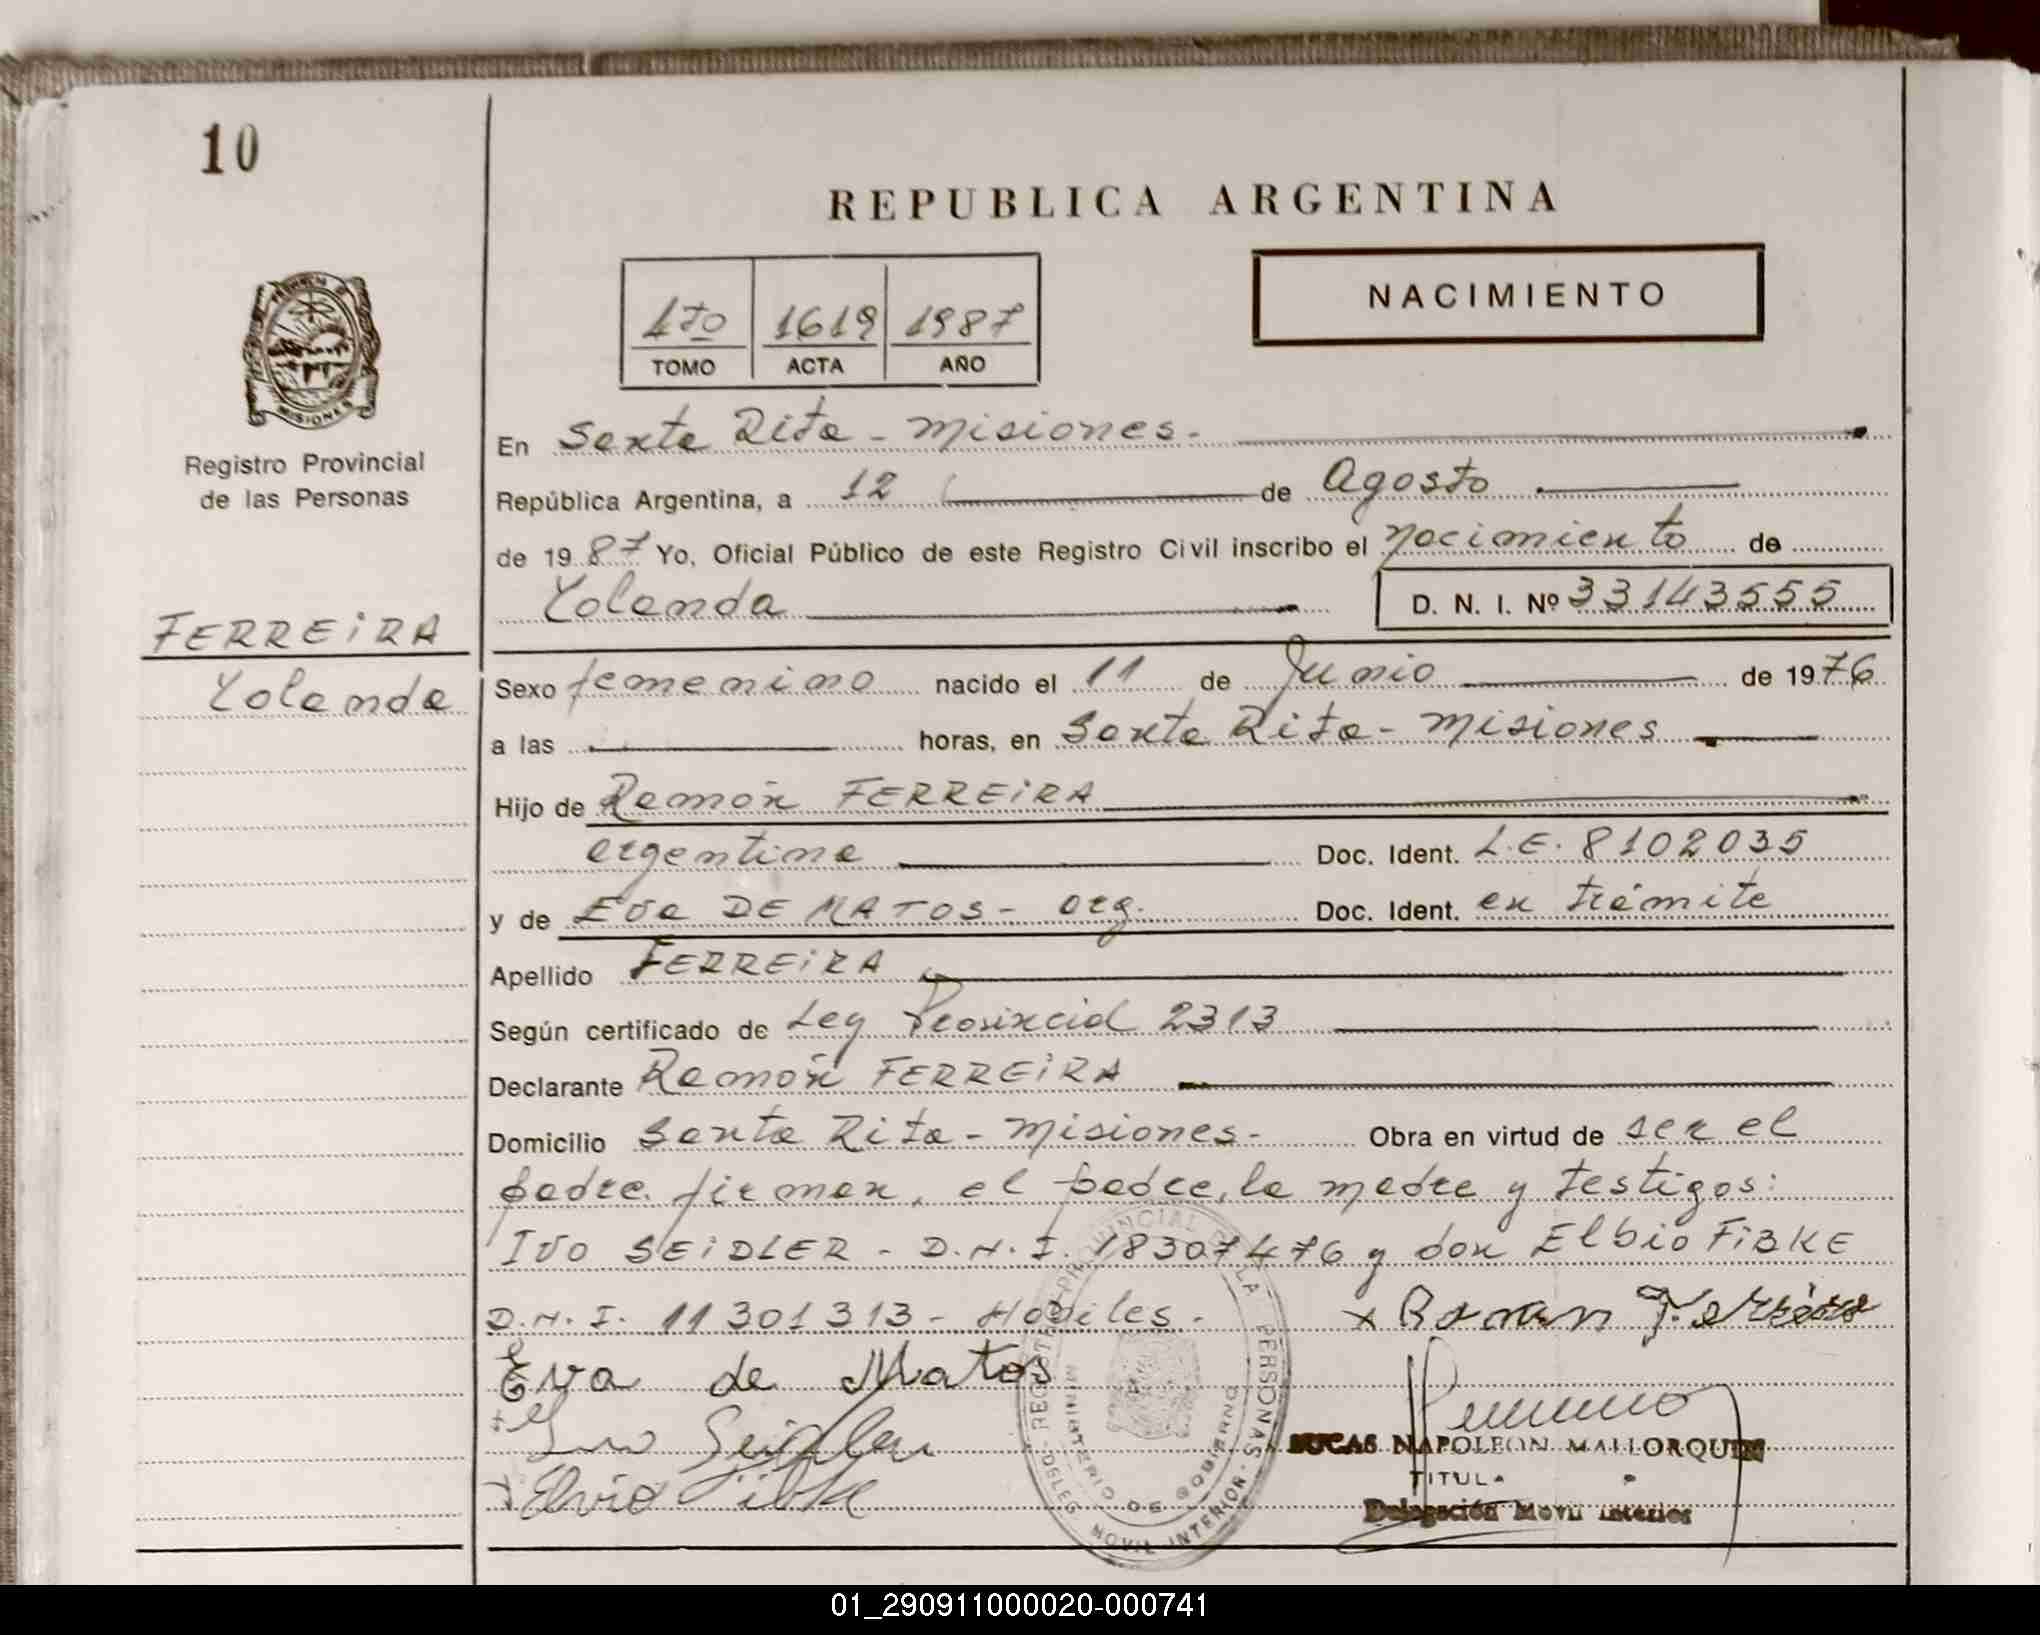 10
REPUBLICA ARGENTINA
NACIMIENTO
4to 1619 1987
TOMO ACTA AÑO
MISIONES
Registro Provincial
de las Personas
FERREIRA
Yolanda
En Santa Rita - Misiones.
República Argentina, a 12 de Agosto
de 1987 Yo, Oficial Público de este Registro Civil inscribo el nacimiento de
Yolanda D. N. I. Nº 33143555
Sexo femenino nacido el 11 de Junio de 1976
a las horas, en Santa Rita - Misiones
Hijo de Ramón FERREIRA
argentina Doc. Ident. L.E. 8102035
y de Eva DE MATOS - arg. Doc. Ident. en trámite
Apellido FERREIRA
Según certificado de Ley Provincial 2313
Declarante Ramón FERREIRA
Domicilio Santa Rita - Misiones - Obra en virtud de ser el
padre. firman, el padre, la madre y testigos:
IVO SEIDLER - D.N.I. 18307476 y don Elbio FIBKE
D.N.I. 11301313 - Hábiles.
x Roman
Eva de Matos
Ivo Seidler
Elvio Fibke
REGISTRO PROVINCIAL DE LA PERSONAS
MINISTERIO DE GOBIERNO
DELEG. MOVIL INTERIOR
LUCAS NAPOLEON MALLORQUIN
TITULA
Delegación Movil Interior
01_290911000020-000741